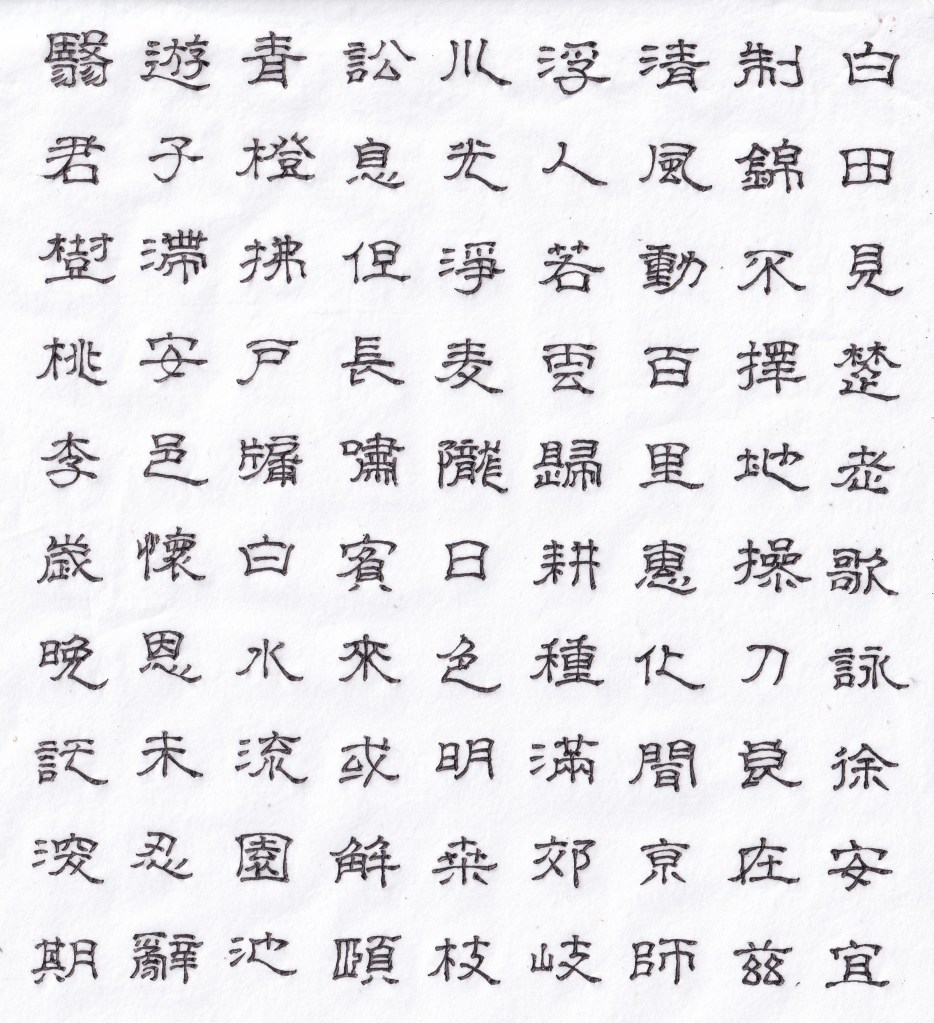 白田見楚老歌詠徐安宜
制錦不擇地操刀良在茲
清風動百里惠化間京師
浮人若雲歸耕種滿郊岐
川光淨麦隴日色明桒枝
訟息但長嘯賓來或解頤
青橙拂戶牖白水流園池
遊子滯安邑懷恩未忍辭
翳君樹桃李歲晚託深期